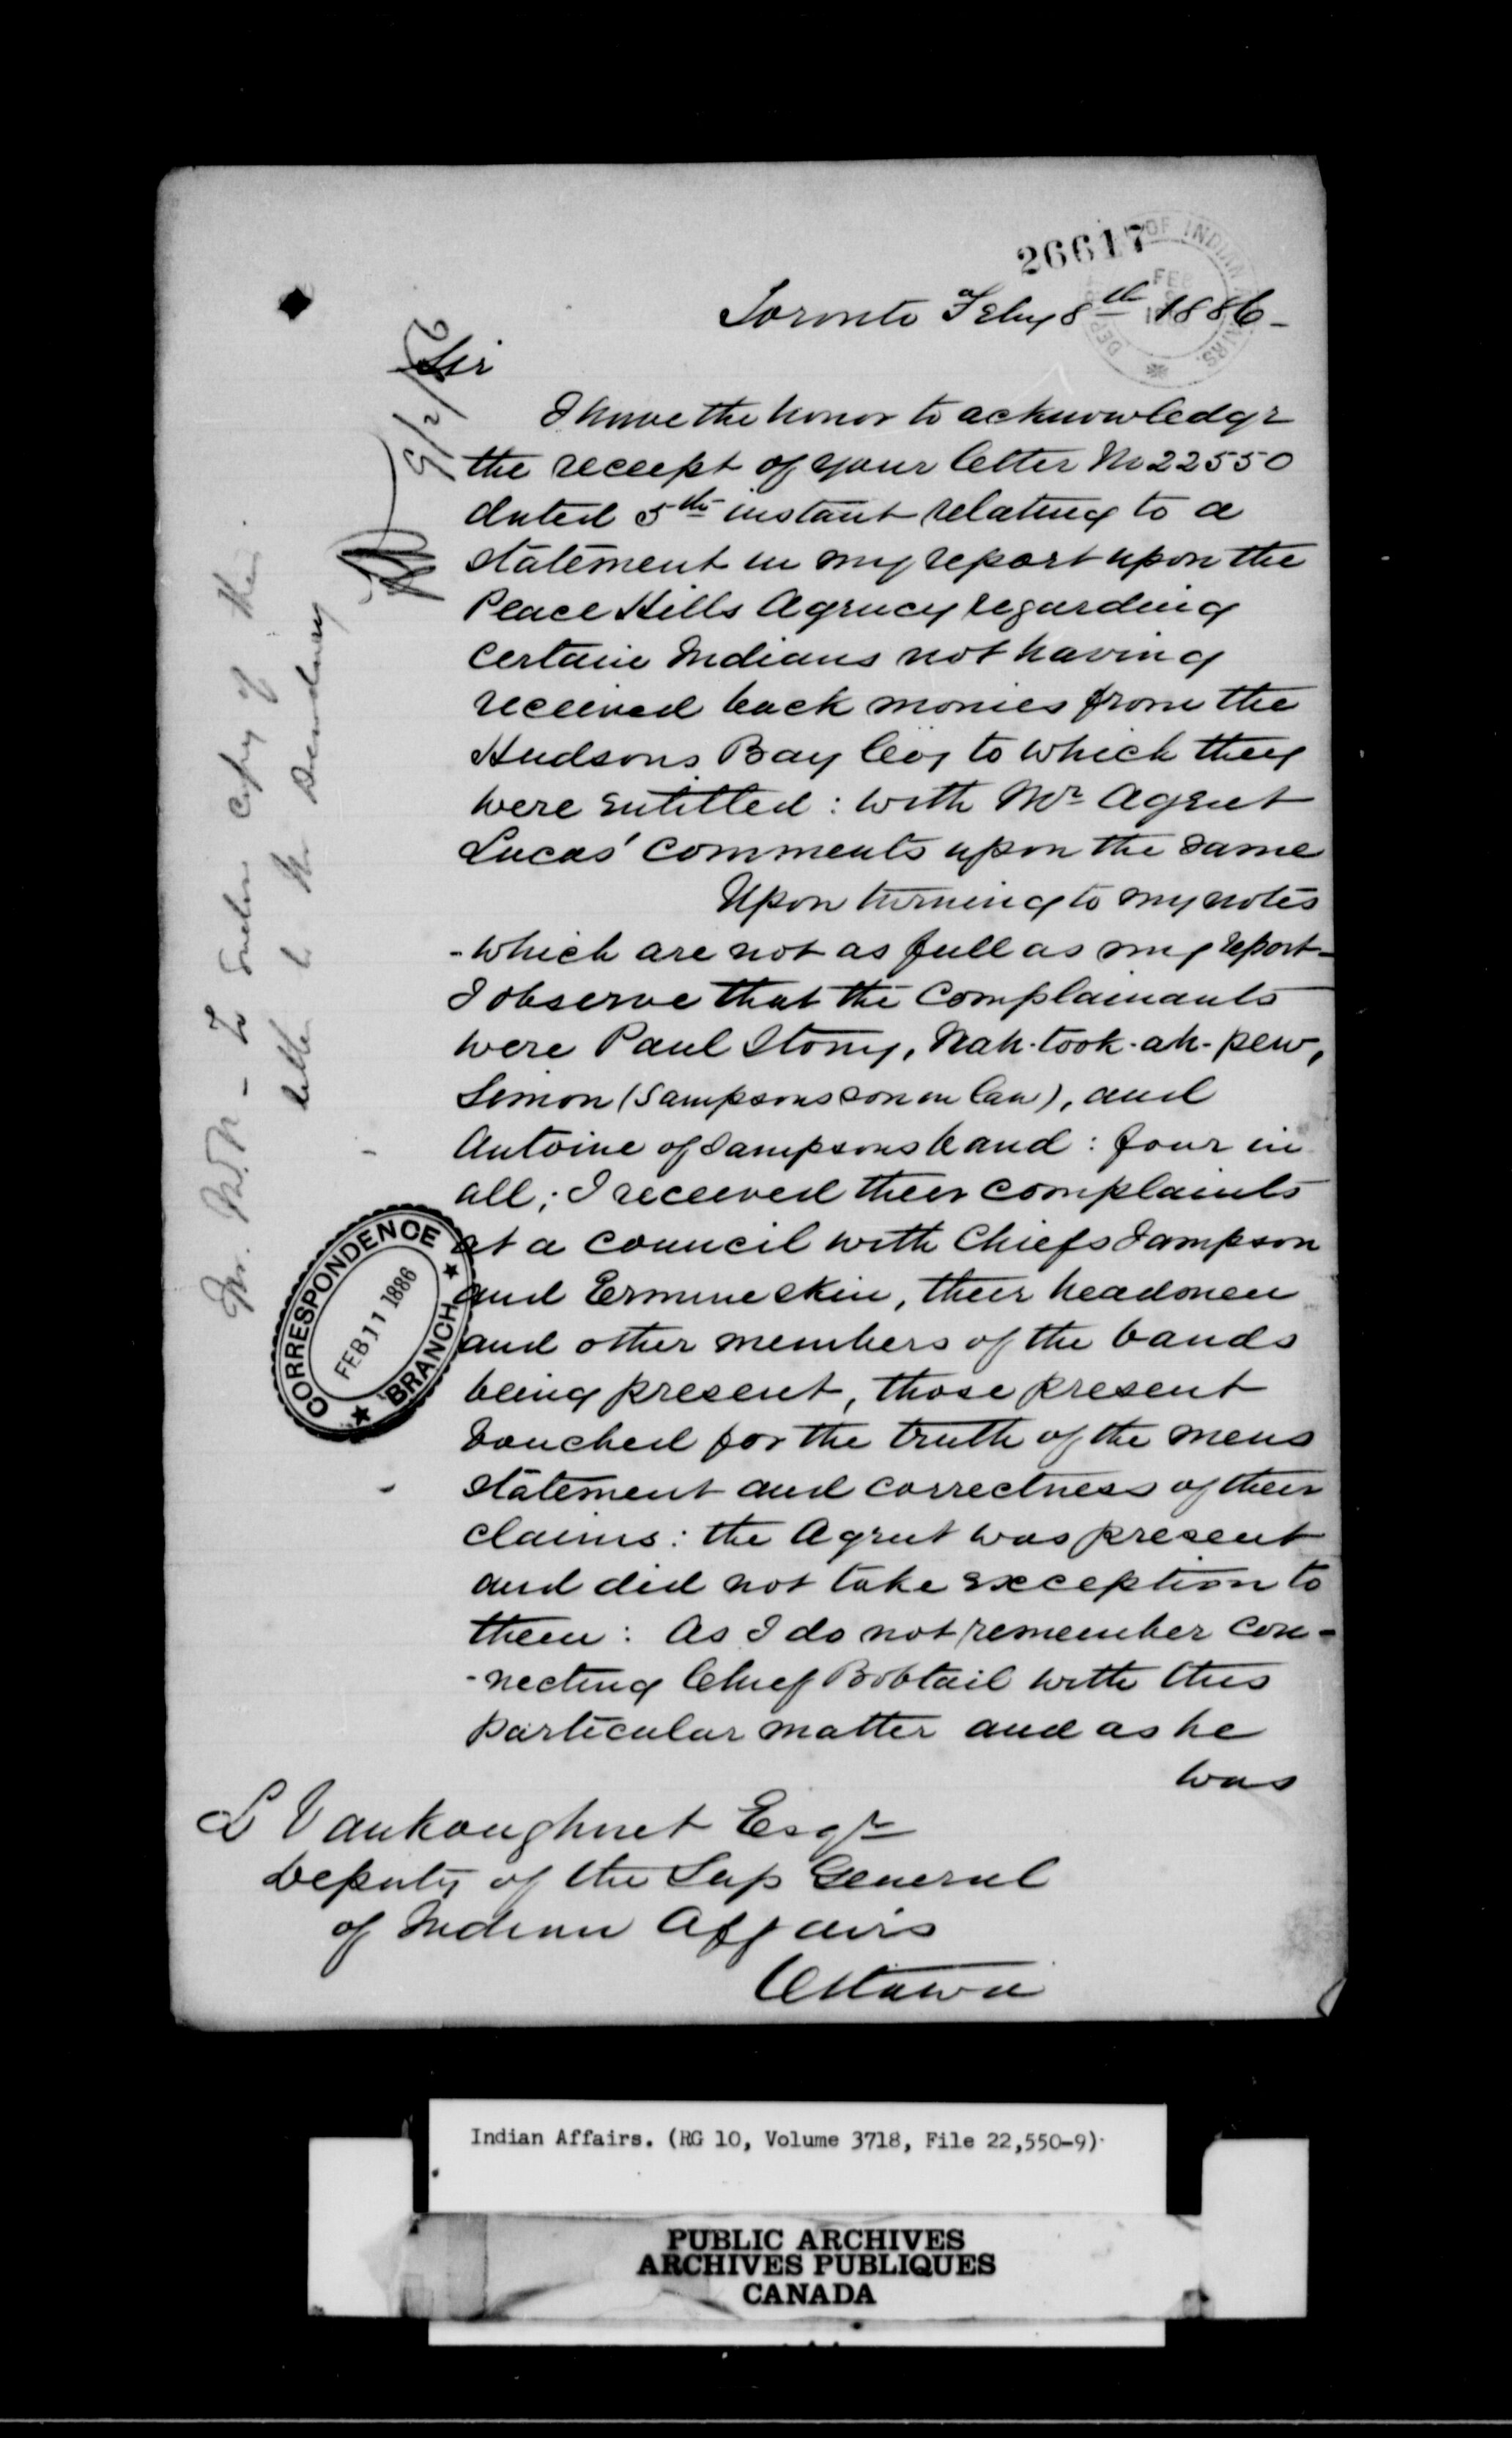 26617
DEP OF INDIAN AFFAIRS.
FEB
Toronto Feby 8th 1886-
Sir
I have the honor to acknowledge
the receipt of your letter No 22550
dated 5th instant relating to a
statement in my report upon the
Peace Hills Agency regarding
certain Indians not having
received back monies from the
Hudsons Bay Coy to which they
were entitled : with Mr Agent
Lucas' comments upon the same
Upon turning to my notes
- which are not as full as my report -
I observe that the complainants
were Paul Stony, Nah-took-ah-pew,
Simon (Sampsons son in law), and
Antoine of Sampsons band : four in
all ; I received their complaints
at a council with Chiefs Sampson
and Ermine skin, their headmen
and other members of the bands
being present, those present
vouched for the truth of the mens
statement and correctness of their
claims : the Agent was present
and did not take exception to
them : As I do not remember con-
-necting Chief Bobtail with this
particular matter and as he
was
L Vankoughnet Esqr
Deputy of the Sup General
of Indian Affairs
Ottawa
Mr. - To copy of this
letter to Mr Dewdney
CORRESPONDENCE
FEB 11 1886
BRANCH
Indian Affairs. (RG 10, Volume 3718, File 22,550-9)
PUBLIC ARCHIVES
ARCHIVES PUBLIQUES
CANADA